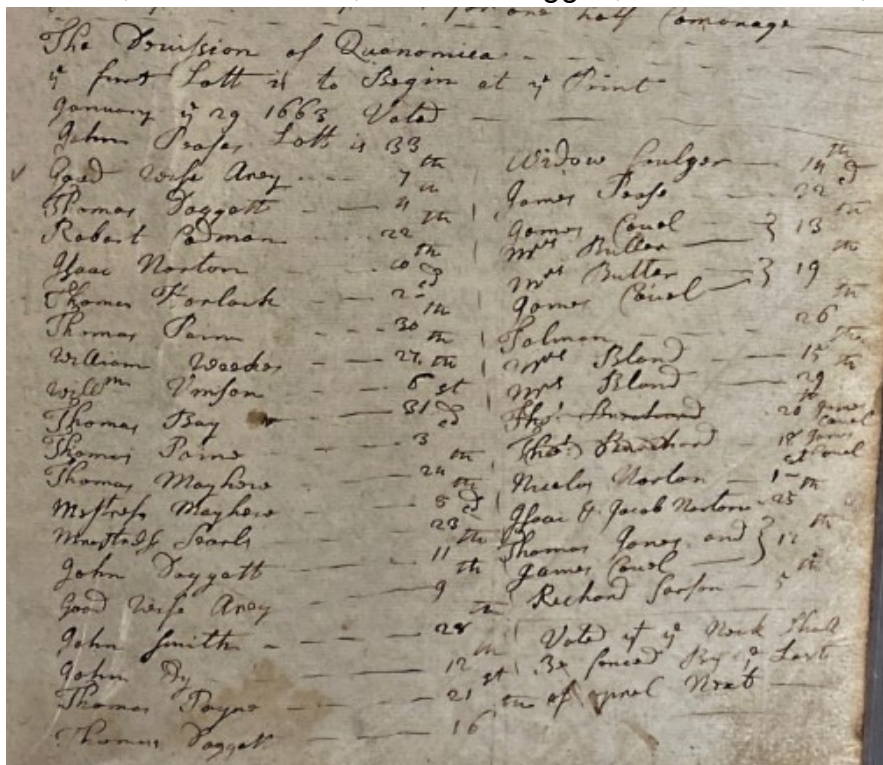 for one half Comonage
The Devission of Quanomica
yͤ first Lott is to Begin at yͤ Point
January yͤ 29 1663 Voted
John Peases Lott is 33
Good Wife Arey 7th
Thomas Daggatt 4th
Robart Codman 22
Isaac Norton 10th
Thomas Harlock 2d
Thomas Paine 30th
William Weeckes 27th
Willm Vinson 6
Thomas Bay 31st
Thomas Paine 3d
Thomas Mayhew 24th
Mistress Mayhew 8
Searls 23d
John Doggatt 11th
Good Wife Arey 9th
John Smith 28th
John Ey 12th
Thomas Payne 21st
Thomas Daggett 16th
Widow Coulger 14th
James Pease 32d
James Couel } 13th
Mrs Butler
Mrs Butler } 19th
James Couel
Tolman 26th
Mrs Bland 15th
Mrs Bland 29th
Tho: Burchard 20 James Couel
Tho: Burchard 18 James Couel
Nicolas Norton 1st
Isaac & Jacob Norton 25th
Thomas Jones and } 17th
James Couel
Richard Sarson 5th
Voted yt yͤ Neck Shall
Be fenced By yͤ Last
of aprel Next